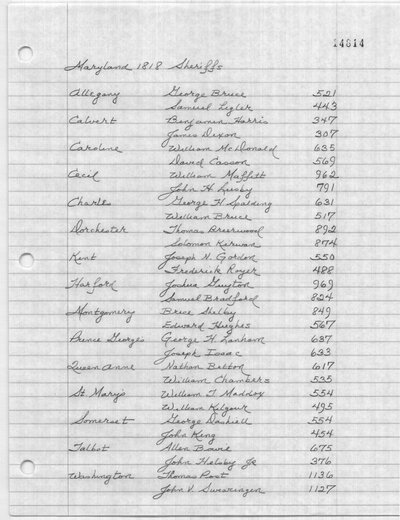 14814
Maryland 1818 Sheriffs
Allegany George Bruce 521
Samuel Legler 443
Calvert Benjamin Harris 347
James Dixon 307
Caroline William McDonald 635
David Casson 569
Cecil William Maffitt 962
John H Lusby 791
Charles George H Spalding 631
William Bruce 517
Dorchester Thomas Breerwood 892
Solomon Kirwan 874
Kent Joseph N. Gordon 550
Frederick Royer 488
Harford Joshua Guyton 969
Samuel Bradford 824
Montgomery Brice Shelby 849
Edward Hughes 567
Prince George's George H. Lanham 637
Joseph Isaac 633
Queen Anne Nathan Betton 617
William Chambers 535
St. Mary's William T. Maddox 554
William Kilgour 495
Somerset George Dashiell 554
John King 454
Talbot Allen Bowie 675
John Helsby Jr 376
Washington Thomas Post 1136
John V. Swearingen 1127